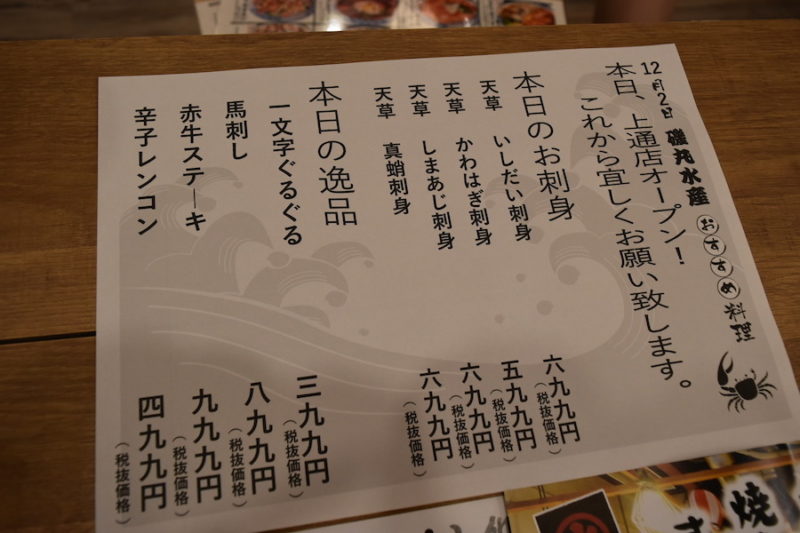 12月2日 磯丸水産 おすすめ料理
本日、上通店オープン！
これから宜しくお願い致します。
本日のお刺身
天草 いしだい刺身 六九九円（税抜価格）
天草 かわはぎ刺身 五九九円（税抜価格）
天草 しまあじ刺身 六九九円（税抜価格）
天草 真蛸刺身 六九九円（税抜価格）
本日の逸品
一文字ぐるぐる 三九九円（税抜価格）
馬刺し 八九九円（税抜価格）
赤牛ステーキ 九九九円（税抜価格）
辛子レンコン 四九九円（税抜価格）
焼